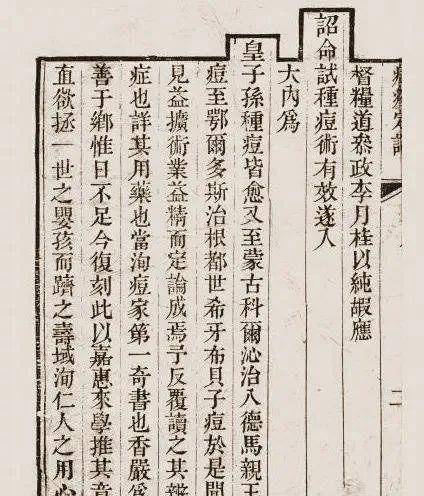 定論
二
督糧道叅政李月桂以純嘏應
詔命試種痘術有效遂入
大內爲
皇子孫種痘皆愈又至蒙古科爾沁治八德馬親王
痘至鄂爾多斯治根都世希牙布貝子痘於是聞
見益擴術業益精而定論成焉予反覆讀之其辨
症也詳其用藥也當洵痘家第一奇書也香嚴爲
善于鄉惟日不足今復刻此以嘉惠來學推其意
直欲拯一世之嬰孩而躋之壽域洵仁人之用心